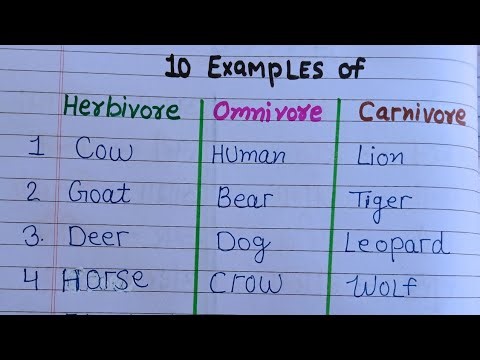 10 Examples of
Herbivore Omnivore Carnivore
1 Cow Human Lion
2 Goat Bear Tiger
3. Deer Dog Leopard
4 Horse Crow Wolf